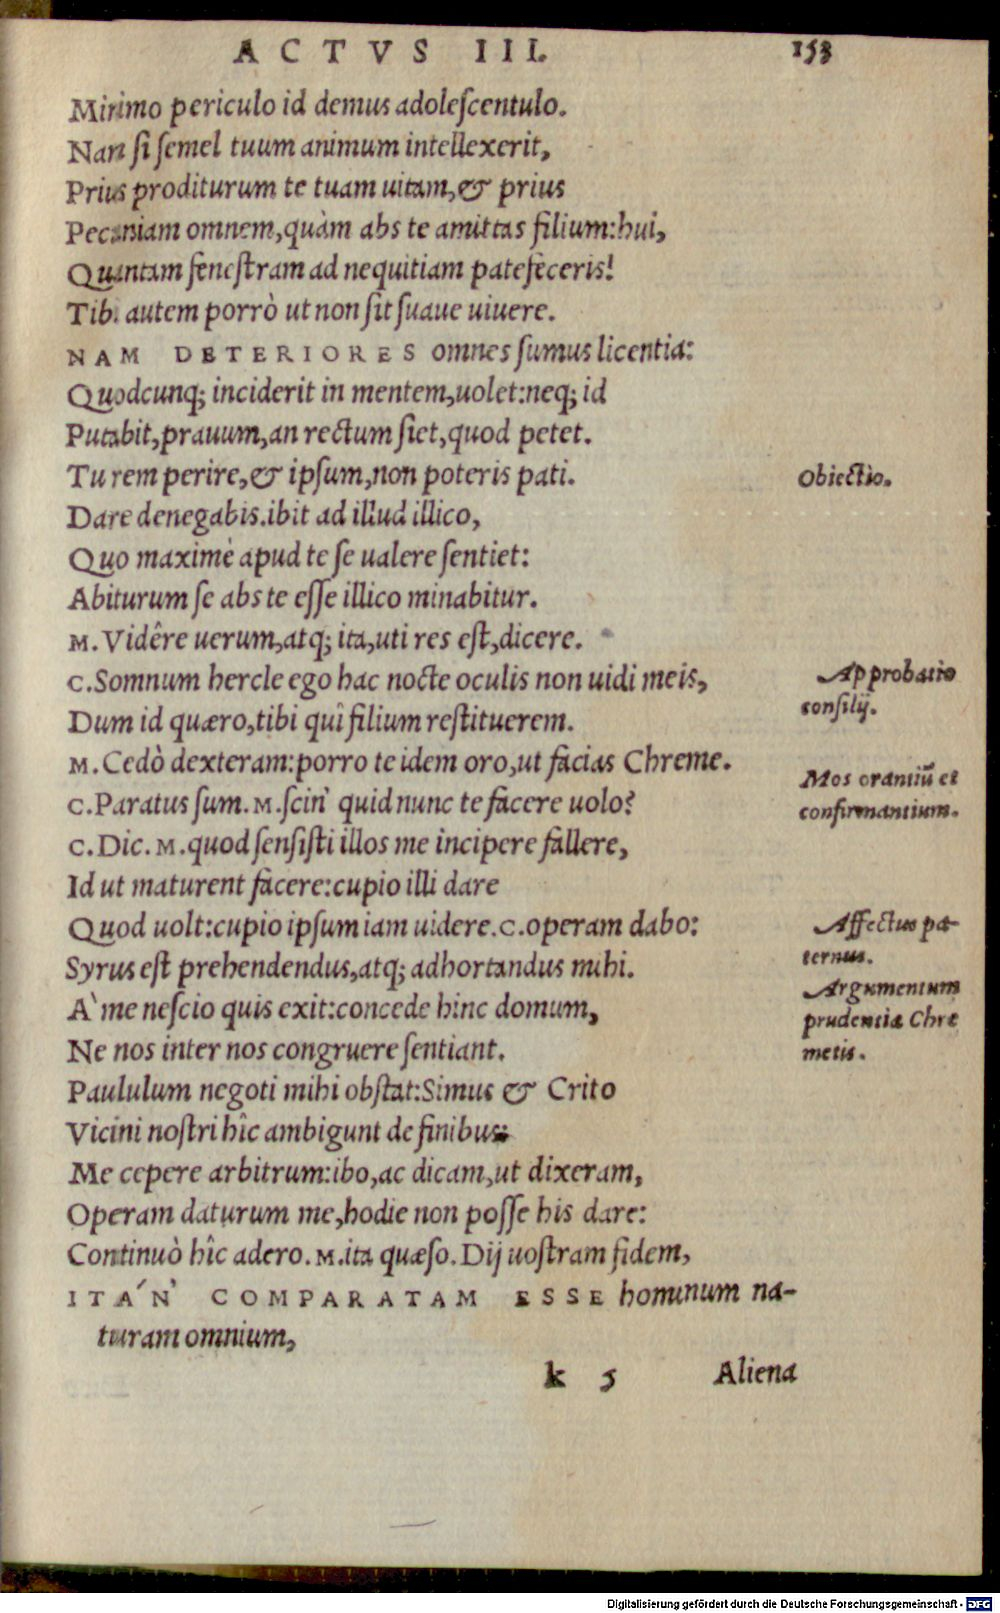 ACTVS III. 153
Minimo periculo id demus adoleſcentulo.
Nan ſi ſemel tuum animum intellexerit,
Prius proditurum te tuam uitam, & prius
Pecuniam omnem, quàm abs te amittas filium: hui,
Quantam feneſtram ad nequitiam patefeceris!
Tibi autem porrò ut non ſit ſuaue uiuere.
NAM DETERIORES omnes ſumus licentia:
Quodcunq; inciderit in mentem, uolet: neq; id
Putabit, prauum, an rectum ſiet, quod petet.
Tu rem perire, & ipſum, non poteris pati.
Obiectio.
Dare denegabis. ibit ad illud illico,
Quo maximè apud te ſe ualere ſentiet:
Abiturum ſe abs te eſſe illico minabitur.
M. Vidêre uerum, atq; ita, uti res eſt, dicere.
C. Somnum hercle ego hac nocte oculis non uidi meis,
Approbatio
conſilij.
Dum id quæro, tibi quî filium reſtituerem.
M. Cedò dexteram: porro te idem oro, ut facias Chreme.
Mos orantiũ et
confirmantium.
C. Paratus ſum. M. ſcin' quid nunc te facere uolo?
C. Dic. M. quod ſenſiſti illos me incipere fallere,
Id ut maturent facere: cupio illi dare
Quod uolt: cupio ipſum iam uidere. C. operam dabo:
Affectus pa-
ternus.
Syrus eſt prehendendus, atq; adhortandus mihi.
Argumentum
prudentiæ Chre
metis.
A` me neſcio quis exit: concede hinc domum,
Ne nos inter nos congruere ſentiant.
Paululum negoti mihi obſtat: Simus & Crito
Vicini noſtri hîc ambigunt de finibus:
Me cepere arbitrum: ibo, ac dicam, ut dixeram,
Operam daturum me, hodie non poſſe his dare:
Continuò hîc adero. M. ita quæſo. Dij uoſtram fidem,
ITA´N' COMPARATAM ESSE hominum na-
turam omnium,
k 5 Aliena
Digitalisierung gefördert durch die Deutsche Forschungsgemeinschaft - DFG